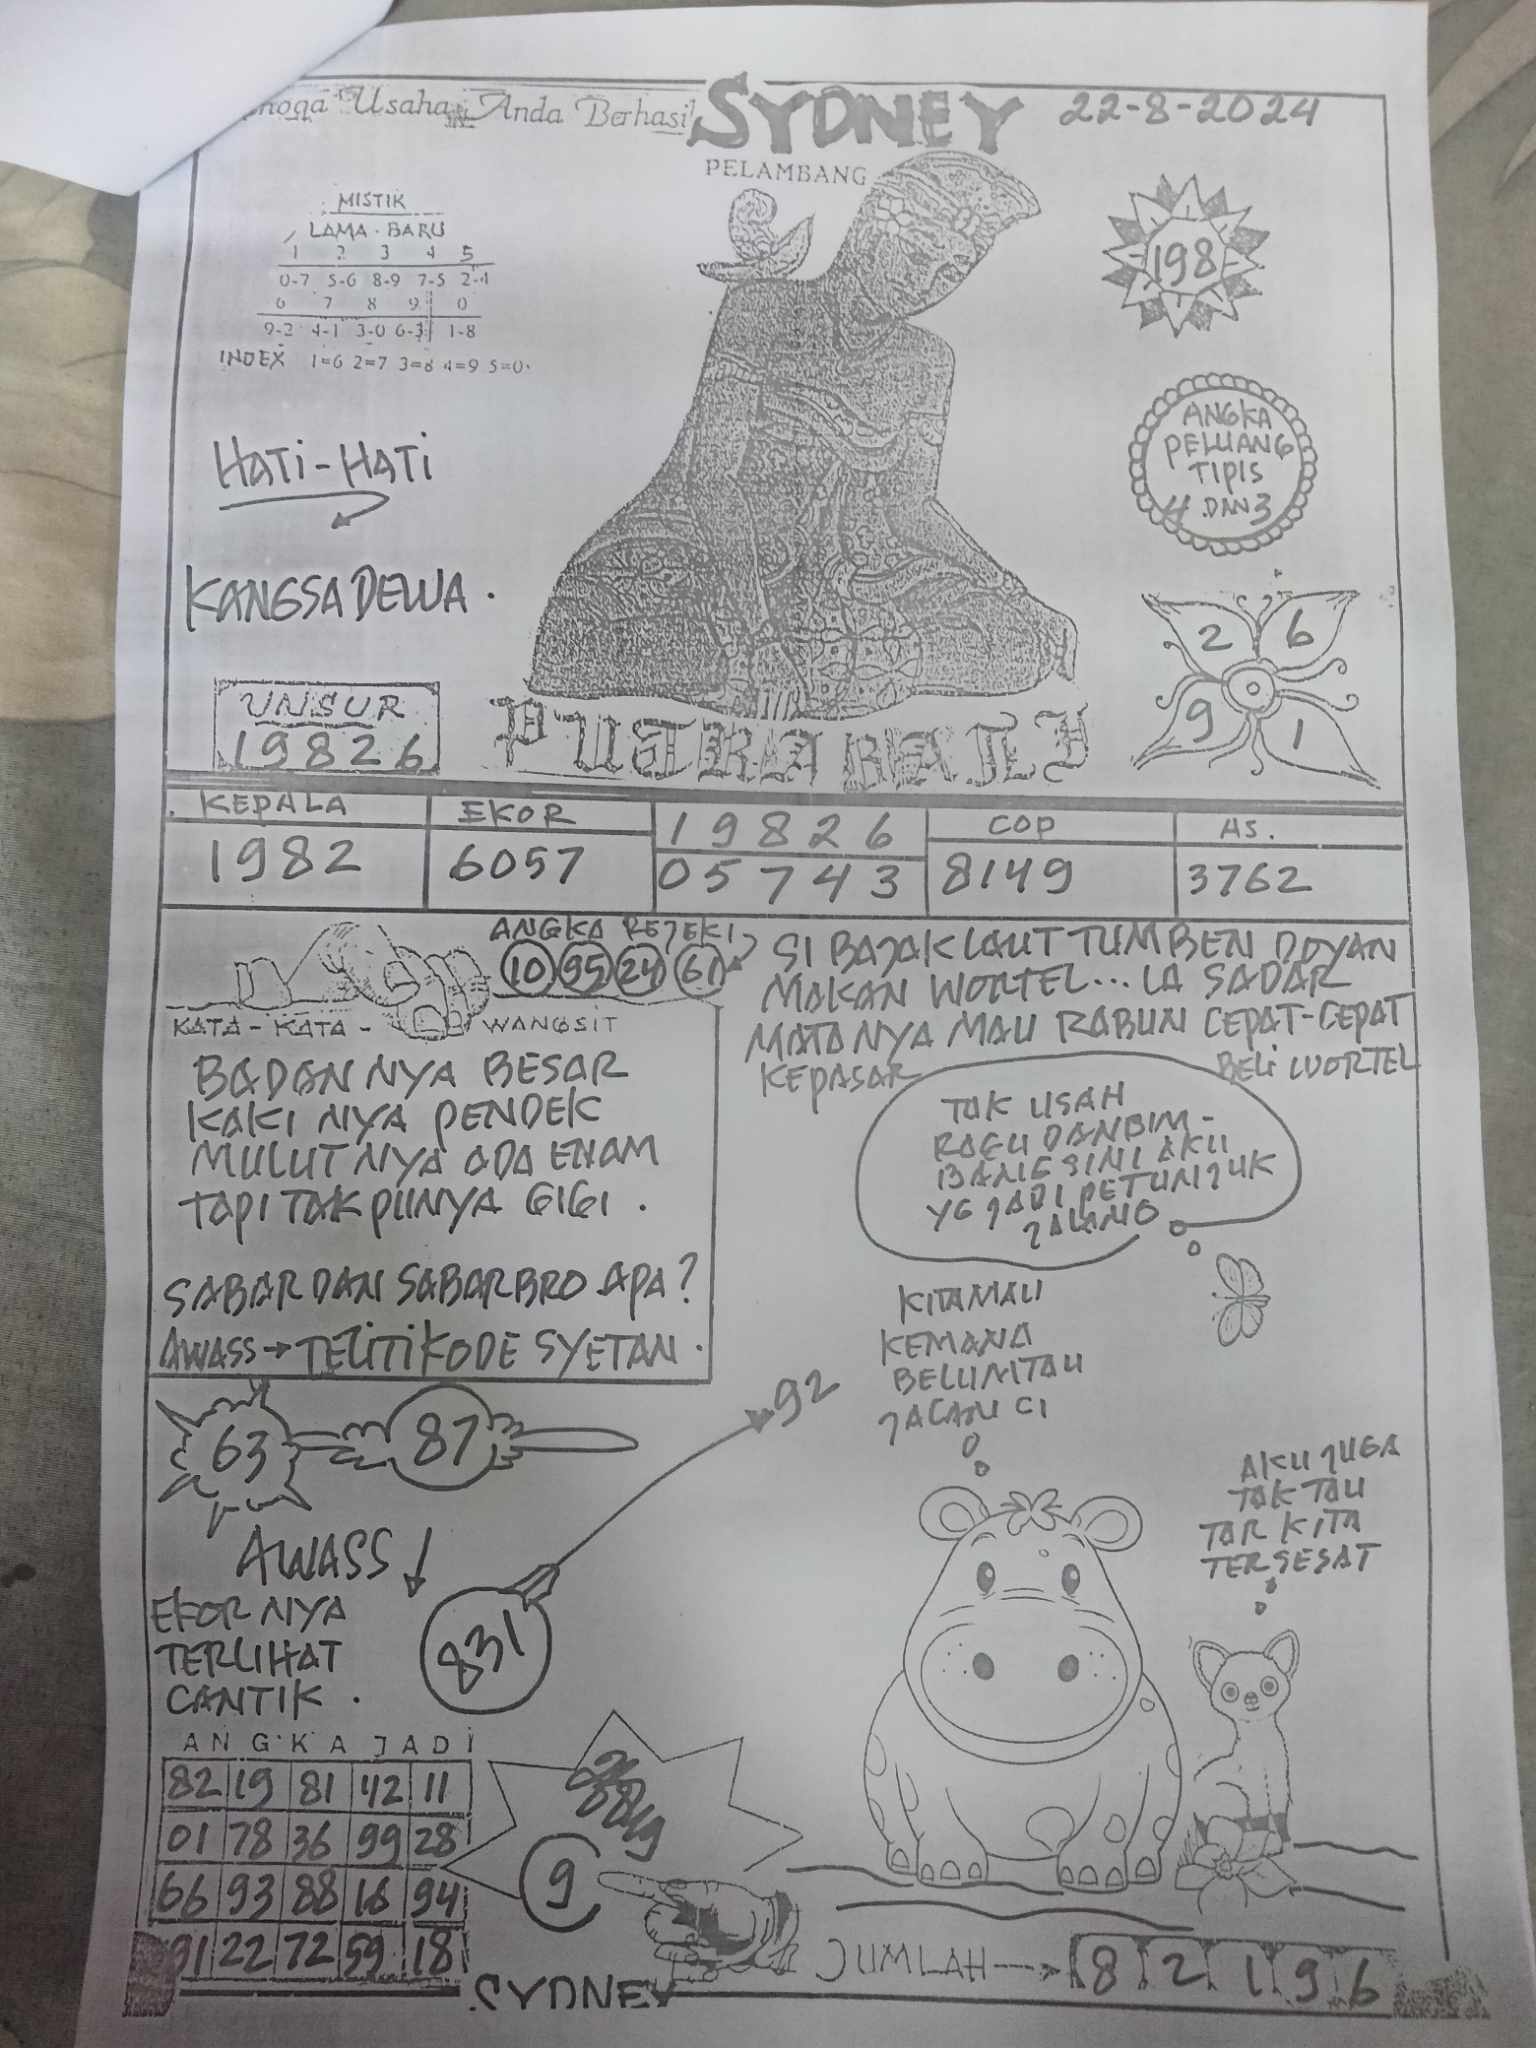 Usaha Anda Berhasil
SYDNEY
22-8-2024
PELAMBANG
MISTIK
LAMA - BARU
1 2 3 4 5
0-7 5-6 8-9 7-5 2-4
6 7 8 9 0
9-2 4-1 3-0 6-3 1-8
INDEX 1=6 2=7 3=8 4=9 5=0
198
HATI-HATI
ANGKA
PELUANG
TIPIS
4 DAN 3
KANGSA DEWA.
2 6
9 1
UNSUR
19826
PUTRA BALI
KEPALA
1982
EKOR
6057
19826
05743
COP
8149
AS.
3762
ANGKA REJEKI
10 95 24 61
KATA-KATA-WANGSIT
BADANNYA BESAR
KAKINYA PENDEK
MULUTNYA ADA ENAM
TAPI TAK PUNYA GIGI.
SABAR DAN SABAR BRO APA?
AWASS → TELITI KODE SYETAN.
SI BAJAK LAUT TUMBEN DOYAN
MAKAN WORTEL... IA SADAR
MATANYA MAU RABUN CEPAT-CEPAT
KEPASAR BELI WORTEL
TAK USAH
RAGU DAN BIM-
BANG SINI AKU
YG JADI PETUNJUK
JALANG
KITA MAU
KEMANA
BELUM TAU
JALAN CI
AKU JUGA
TAK TAU
TAR KITA
TERSESAT
63 87
92
831
AWASS ↓
EKORNYA
TERLIHAT
CANTIK.
ANGKA JADI
82 19 81 42 11
01 78 36 99 28
66 93 88 16 94
91 22 72 59 18
9
JUMLAH → 8 2 1 9 6
SYDNEY